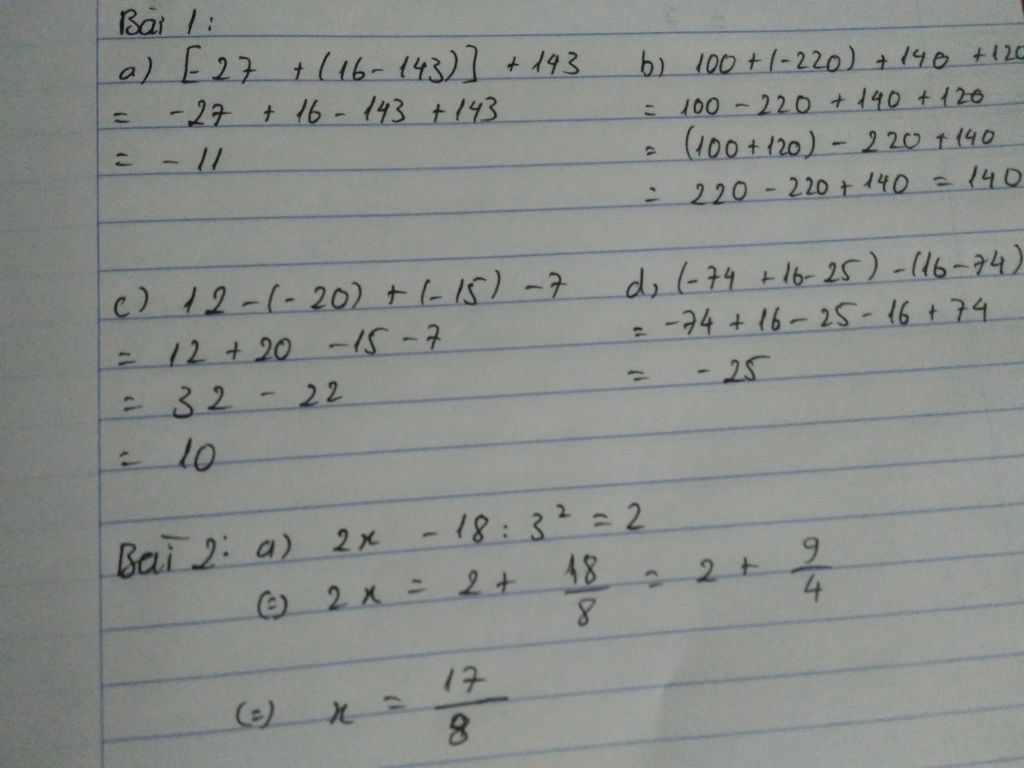 Bài 1:
a) [-27 + (16 - 143)] + 143
= -27 + 16 - 143 + 143
= - 11
b) 100 + (-220) + 140 + 120
= 100 - 220 + 140 + 120
= (100 + 120) - 220 + 140
= 220 - 220 + 140 = 140
c) 12 - (-20) + (-15) - 7
= 12 + 20 - 15 - 7
= 32 - 22
= 10
d, (-74 + 16 - 25) - (16 - 74)
= -74 + 16 - 25 - 16 + 74
= - 25
Bài 2: a) 2x - 18 : 3² = 2
(=) 2x = 2 + 18/8 = 2 + 9/4
(=) x = 17/8